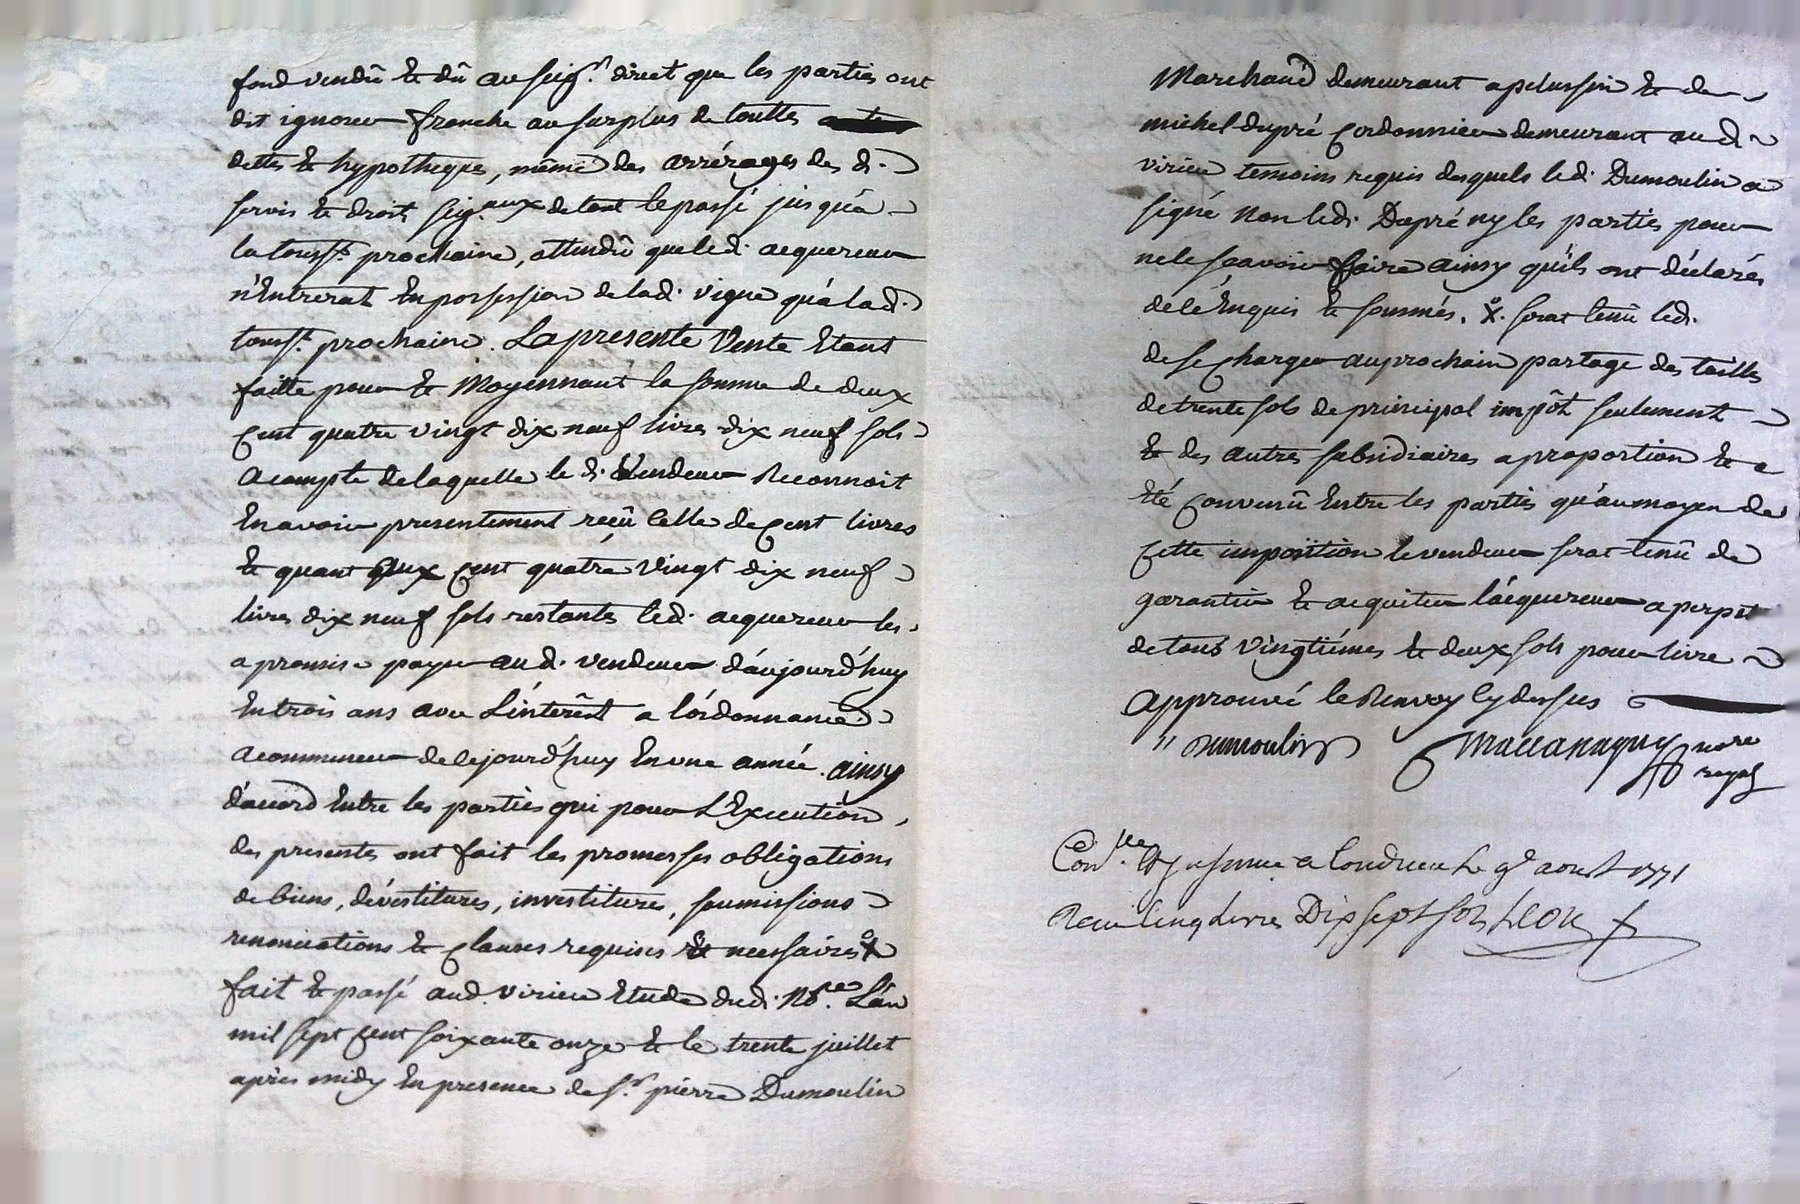 fond vendû & dû au seigr. direct que les parties ont
dit ignorer franche au surplus de touttes
dettes & hypotheques, même des arrérages des d.
servis & droit seig.aux de tout le passé jusqu'à
la touss.t prochaine, attendû que led. acquereur
n'Entrerat En possession de lad. vigne qu'a lad.
touss.t prochaine. La presente Vente Etant
faitte pour & Moyennant la somme de deux
cent quatre vingt dix neuf livres dix neuf sols
acompte de laquelle le d. Vendeur Reconnoit
En avoir presentement reçû Celle de Cent livres
& quant aux cent quatre Vingt dix neuf
livres dix neuf sols restants led. acquereur les
a promis payer aud. vendeur d'aujourd'huy
En trois ans avec L'intèrêst a l'órdonnance
a commencer de cejourd'huy En une année. ainsy
d'accord Entre les parties qui pour L'Execution
des presentes ont fait les promesses obligations
de biens, dévestitures, investitures, soumissions
renonciations & clauses requises & necessaires X
fait & passé aud. virieu Etude dud. No.re L'an
mil sept cent soixante onze & le trente juillet
après midy En presence de s.r pierre Dumoulin
Marchand demeurant a pelussin & de
michel dupré Cordonnier demeurant aud.
virieu temoins requis desquels led. Dumoulin a
signé Non led. Dupré ny les parties pour
ne le sçavoir faire ainsy qu'ils ont déclarés
de cé Enquis & sommés. X. serat tenû led.
de se charger au prochain partage des tailles
de trente sols de principal impôt seulement
& des autres subsidiaires a proportion & a
Eté Convenû Entre les parties qu'au moyen de
Cette imposition le vendeur serat tenû de
garantir & acquiter l'acquereur a perpét
de tous Vingtiémes & deux sols pour livre
Approuvé le Renvoy Cy dessus
Dumoulin nore
royal
Con.lle a Condrieu le 9e aoust 1771
Recu Cinq Livres Dix sept sols